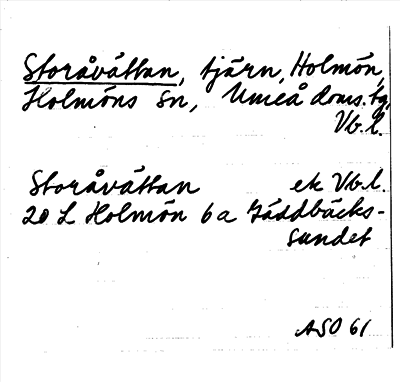 Storåvättan, tjärn, Holmön,
Holmöns sn, Umeå doms. tg,
Vb. l.
Storåvättan ek Vb. l.
20 L Holmön 6 a Gäddbäcks-
sundet
ASO 61